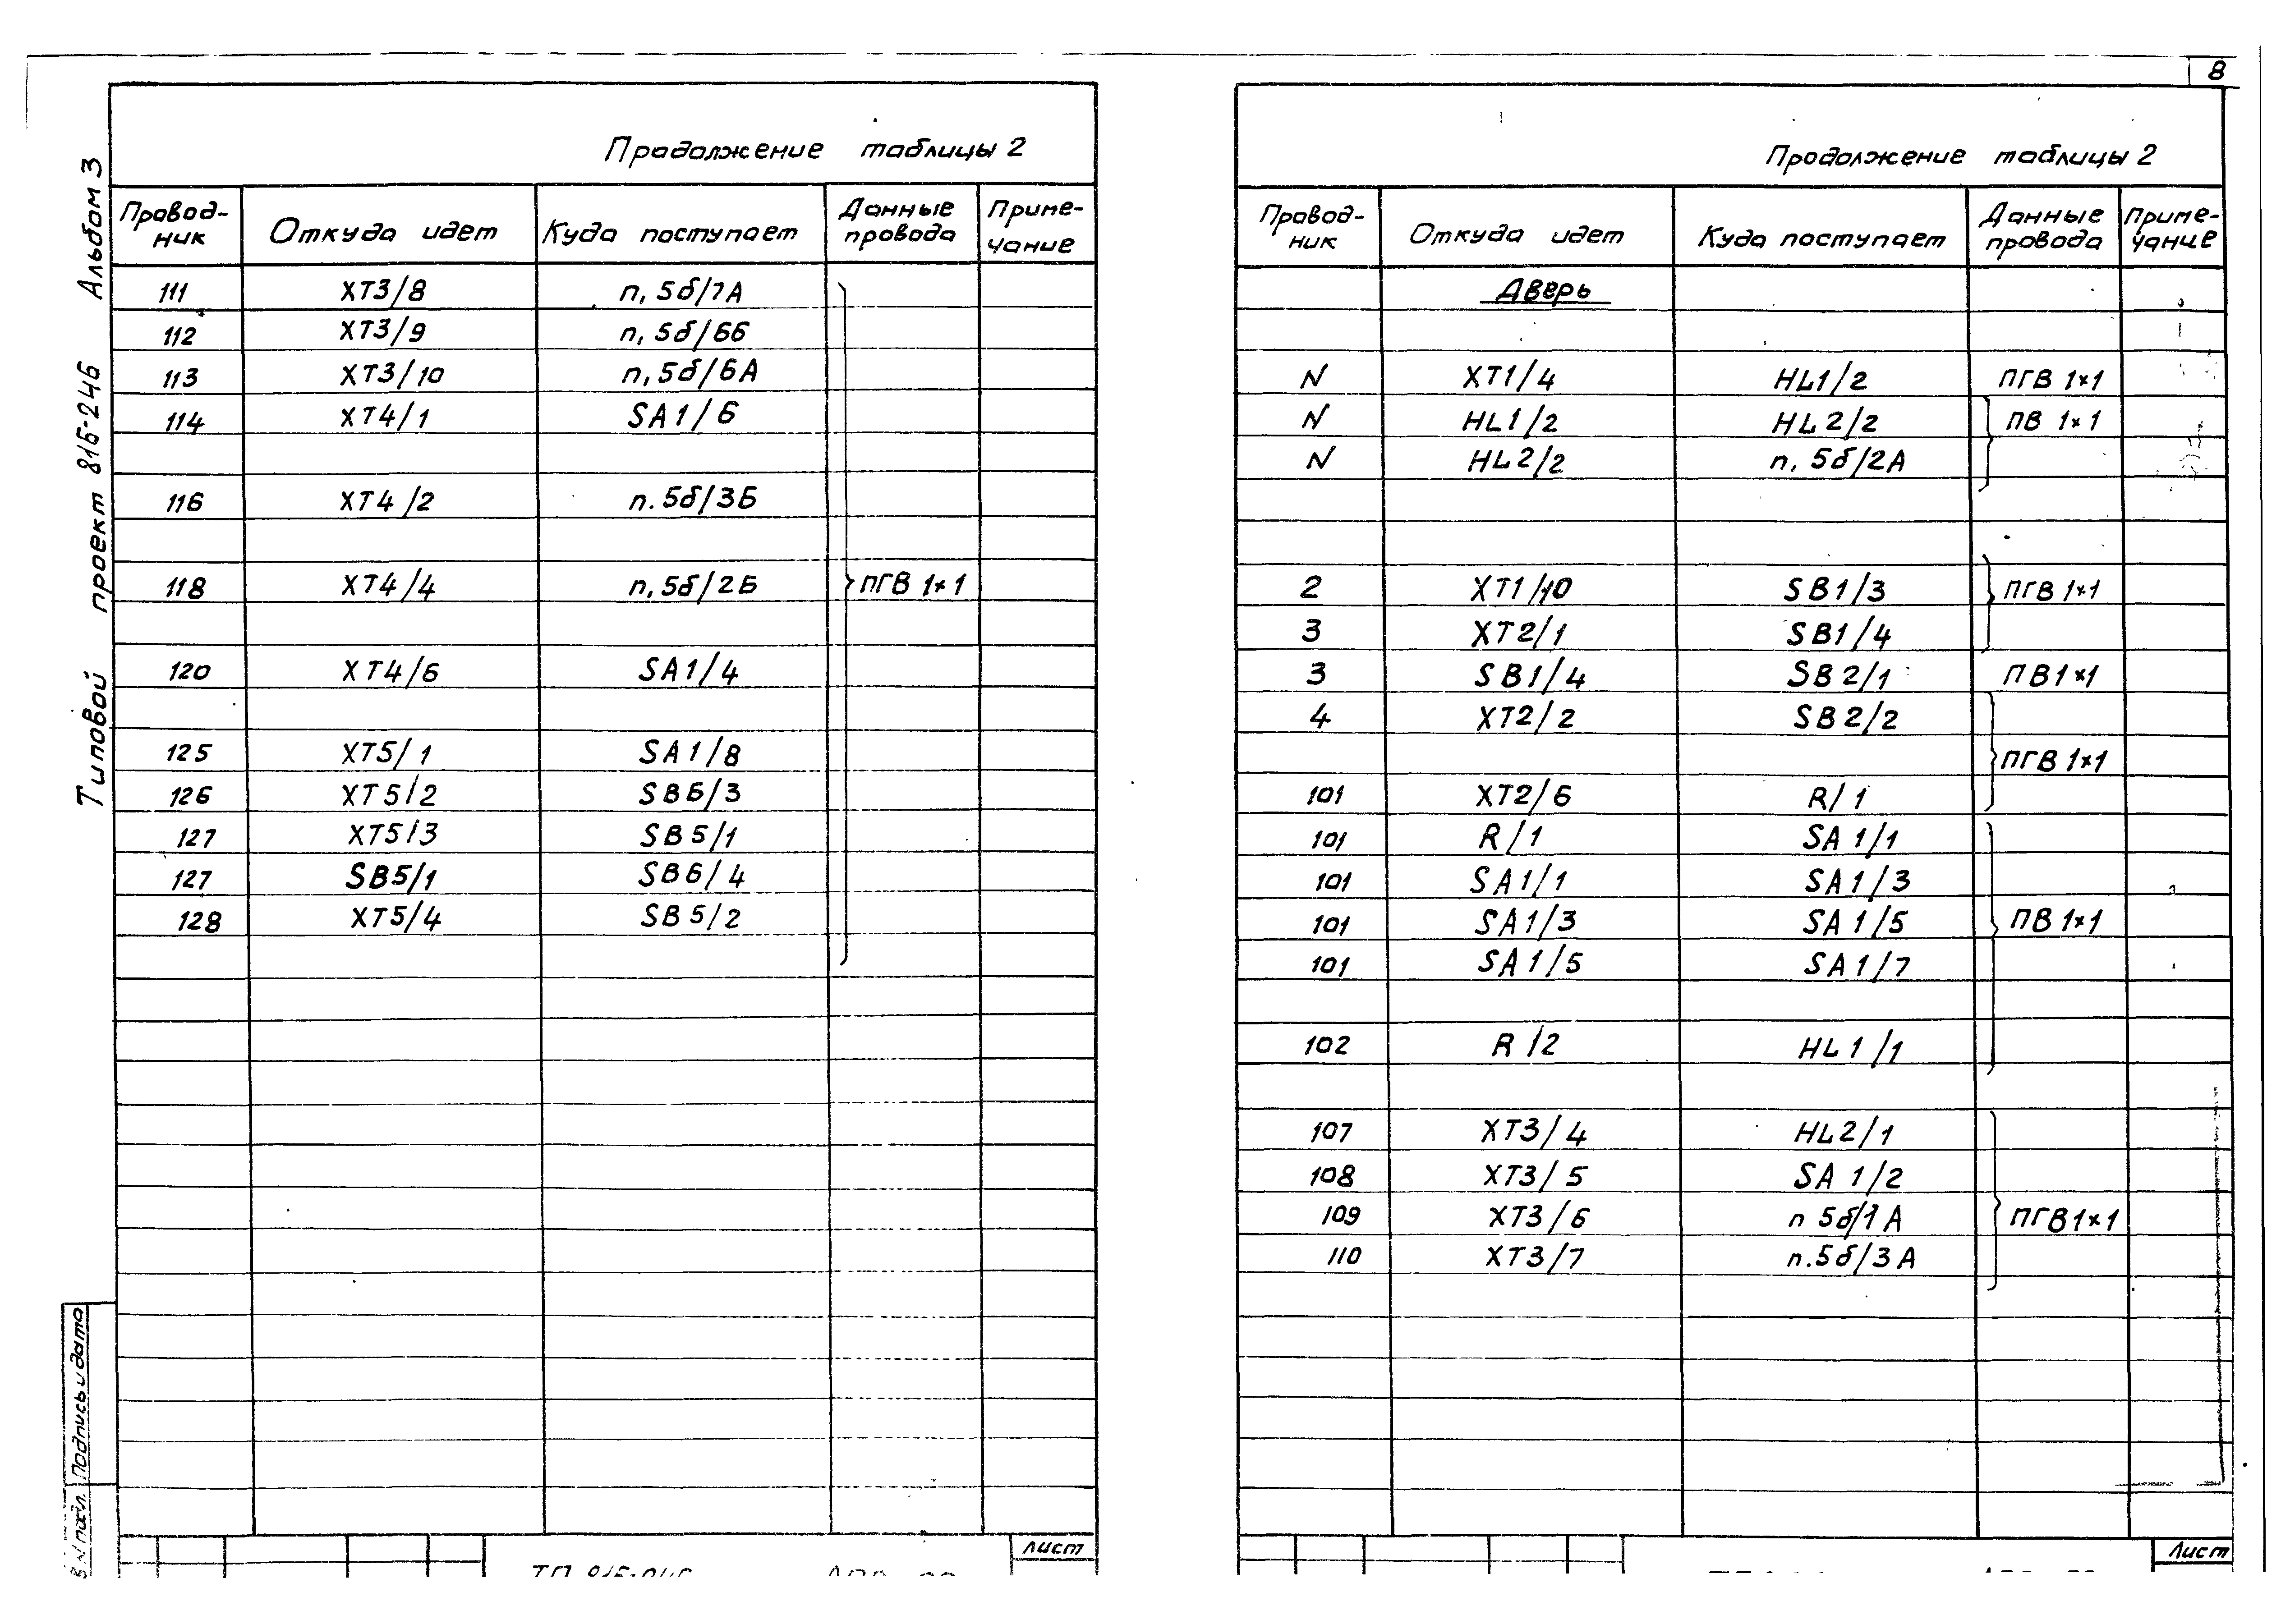 8
Типовой проект 816-246 Альбом 3
Продолжение таблицы 2
Провод-ник Откуда идет Куда поступает Данные провода Приме-чание
111 XT3/8 п, 5б/7А
112 XT3/9 п, 5б/6Б
113 XT3/10 п, 5б/6А
114 XT4/1 SA1/6
116 XT4/2 п. 5б/3Б
118 XT4/4 п, 5б/2Б ПГВ 1×1
120 XT4/6 SA1/4
125 XT5/1 SA1/8
126 XT5/2 SB6/3
127 XT5/3 SB5/1
127 SB5/1 SB6/4
128 XT5/4 SB5/2
Подпись и дата
лист
Продолжение таблицы 2
Провод-ник Откуда идет Куда поступает Данные провода Приме-чание
Дверь
N XT1/4 HL1/2 ПГВ 1×1
N HL1/2 HL2/2 ПВ 1×1
N HL2/2 п, 5б/2А
2 XT1/10 SB1/3 ПГВ 1×1
3 XT2/1 SB1/4
3 SB1/4 SB2/1 ПВ1×1
4 XT2/2 SB2/2
ПГВ 1×1
101 XT2/6 R/1
101 R/1 SA1/1
101 SA1/1 SA1/3
101 SA1/3 SA1/5 ПВ 1×1
101 SA1/5 SA1/7
102 R/2 HL1/1
107 XT3/4 HL2/1
108 XT3/5 SA1/2
109 XT3/6 п 5б/1А ПГВ1×1
110 XT3/7 п.5б/3А
Лист